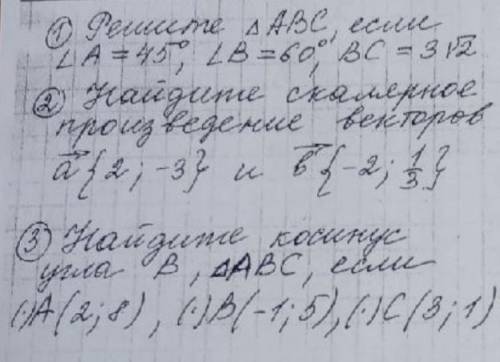 ① Решите △ABC, если
∠A = 45°, ∠B = 60°, BC = 3√2
② Найдите скалярное
произведение векторов
a⃗ {2; -3} и b⃗ {-2; 1/3}
③ Найдите косинус
угла B, △ABC, если
(·)A(2; 8), (·)B(-1; 5), (·)C(3; 1)